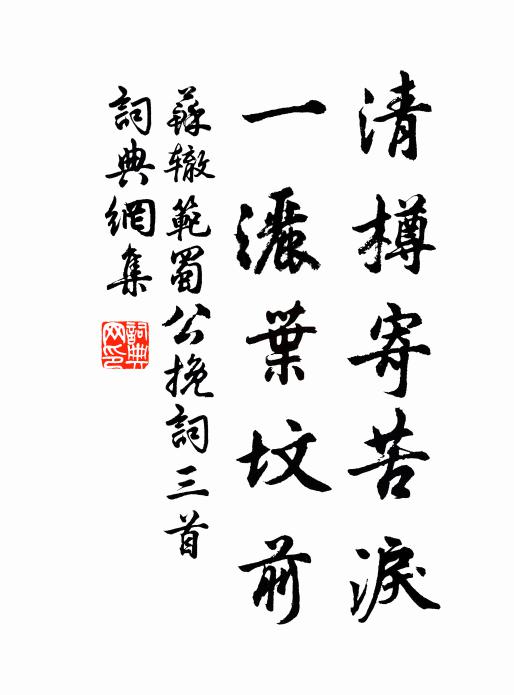 清樽寄苦淚
一灑葉坟前
蘇辙範蜀公挽詞三首
詞典網集
詞典網印